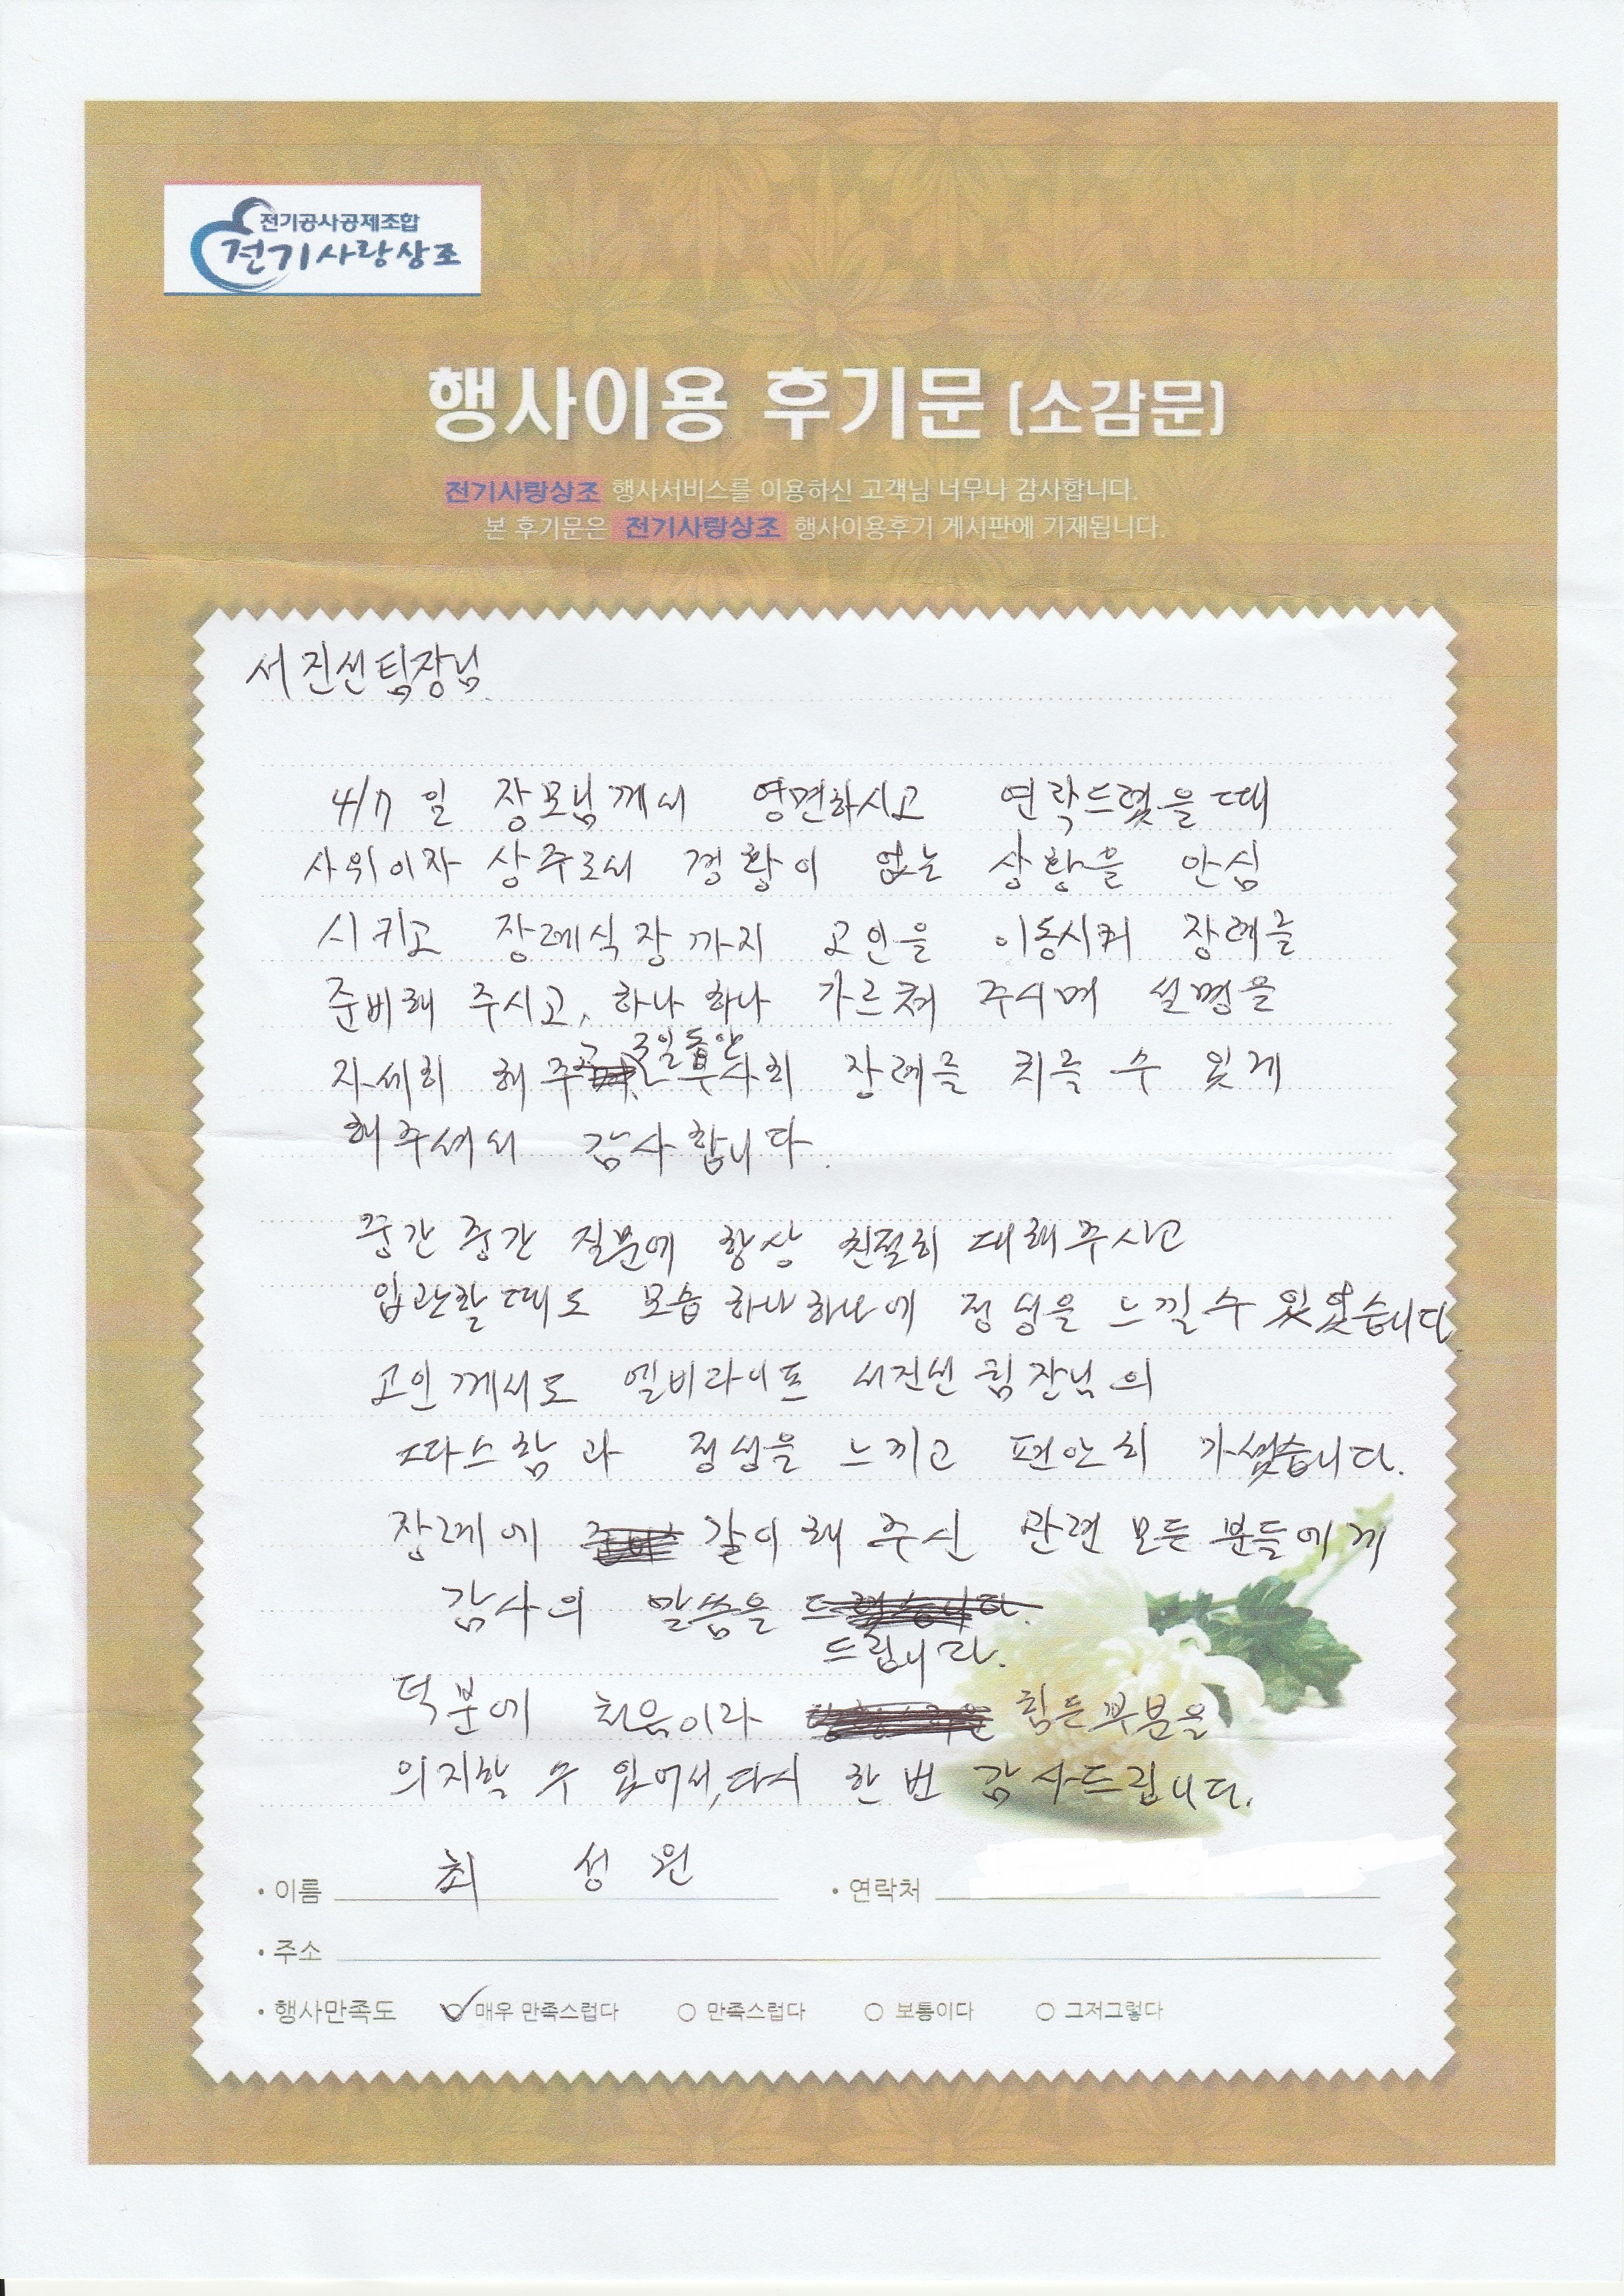 전기공사공제조합
전기사랑상조
행사이용 후기문 (소감문)
전기사랑상조 행사서비스를 이용하신 고객님 너무나 감사합니다.
본 후기문은 전기사랑상조 행사이용후기 게시판에 기재됩니다.
서진선팀장님.
4/7일 장모님께서 영면하시고 연락드렸을때
사위이자 상주로서 경황이 없는 상황을 안심
시키고 장례식장까지 고인을 이동시켜 장례를
준비해 주시고, 하나 하나 가르쳐 주시며 설명을
3일동안
자세히 해 주고 무사히 장례를 치를 수 있게
해주셔서 감사합니다.
중간 중간 질문에 항상 친절히 대해주시고
입관할때도 모습 하나하나에 정성을 느낄수 있었습니다
고인께서도 엘비라이프 서진선팀장님의
따스함과 정성을 느끼고 편안히 가셨습니다.
장례에 같이 해 주신 관련 모든 분들에게
감사의 말씀을
드립니다.
덕분에 처음이라 힘든부분을
의지할 수 있어서, 다시 한번 감사드립니다.
• 이름 최 성 원 • 연락처
• 주소
• 행사만족도 ✓○ 매우 만족스럽다 ○ 만족스럽다 ○ 보통이다 ○ 그저그렇다